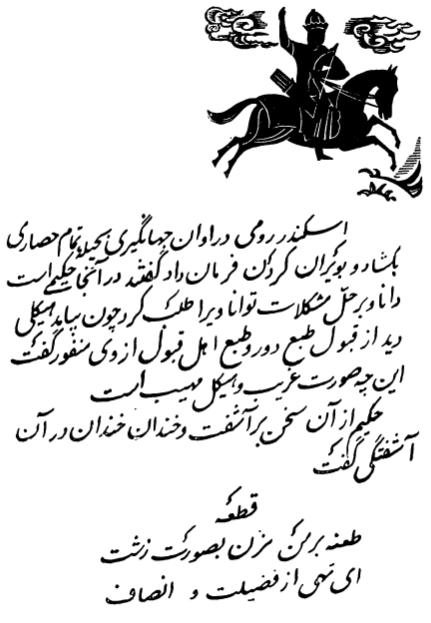 اسکندر رومی در اوان جهانگیری بحیله تمام حصاری
بگشاد و بویران کردن فرمان داد گفتند در آنجا حکیمی است
دانا و بر حلّ مشکلات توانا ویرا طلب کرد چون بیامد هیکلی
دید از قبول طبع دور و طبع اهل قبول از وی منفور گفت
این چه صورت غریب و هیکل مهیب است
حکیم از آن سخن بر آشفت و خندان خندان در آن
آشفتگی گفت
قطعه
طعنه بر من مزن بصورت زشت
ای تهی از فضیلت و انصاف